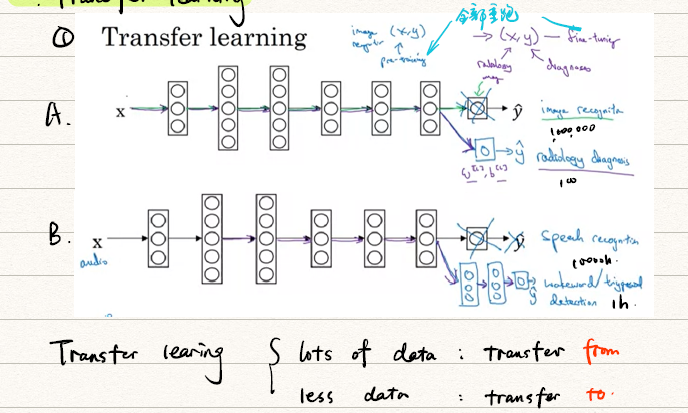 Transfer learning
① Transfer learning
image (x, y)
pre-training
全部重跑
→ (x, y) — fine-tuning
radiology image
diagnoses
A. x ŷ image recognition
1,000,000
ŷ radiology diagnosis
100
B. x ŷ speech recognition
audio
10000h.
wakeword/
ŷ detection 1h.
Transfer learing { lots of data : transfer from
less data : transfer to.